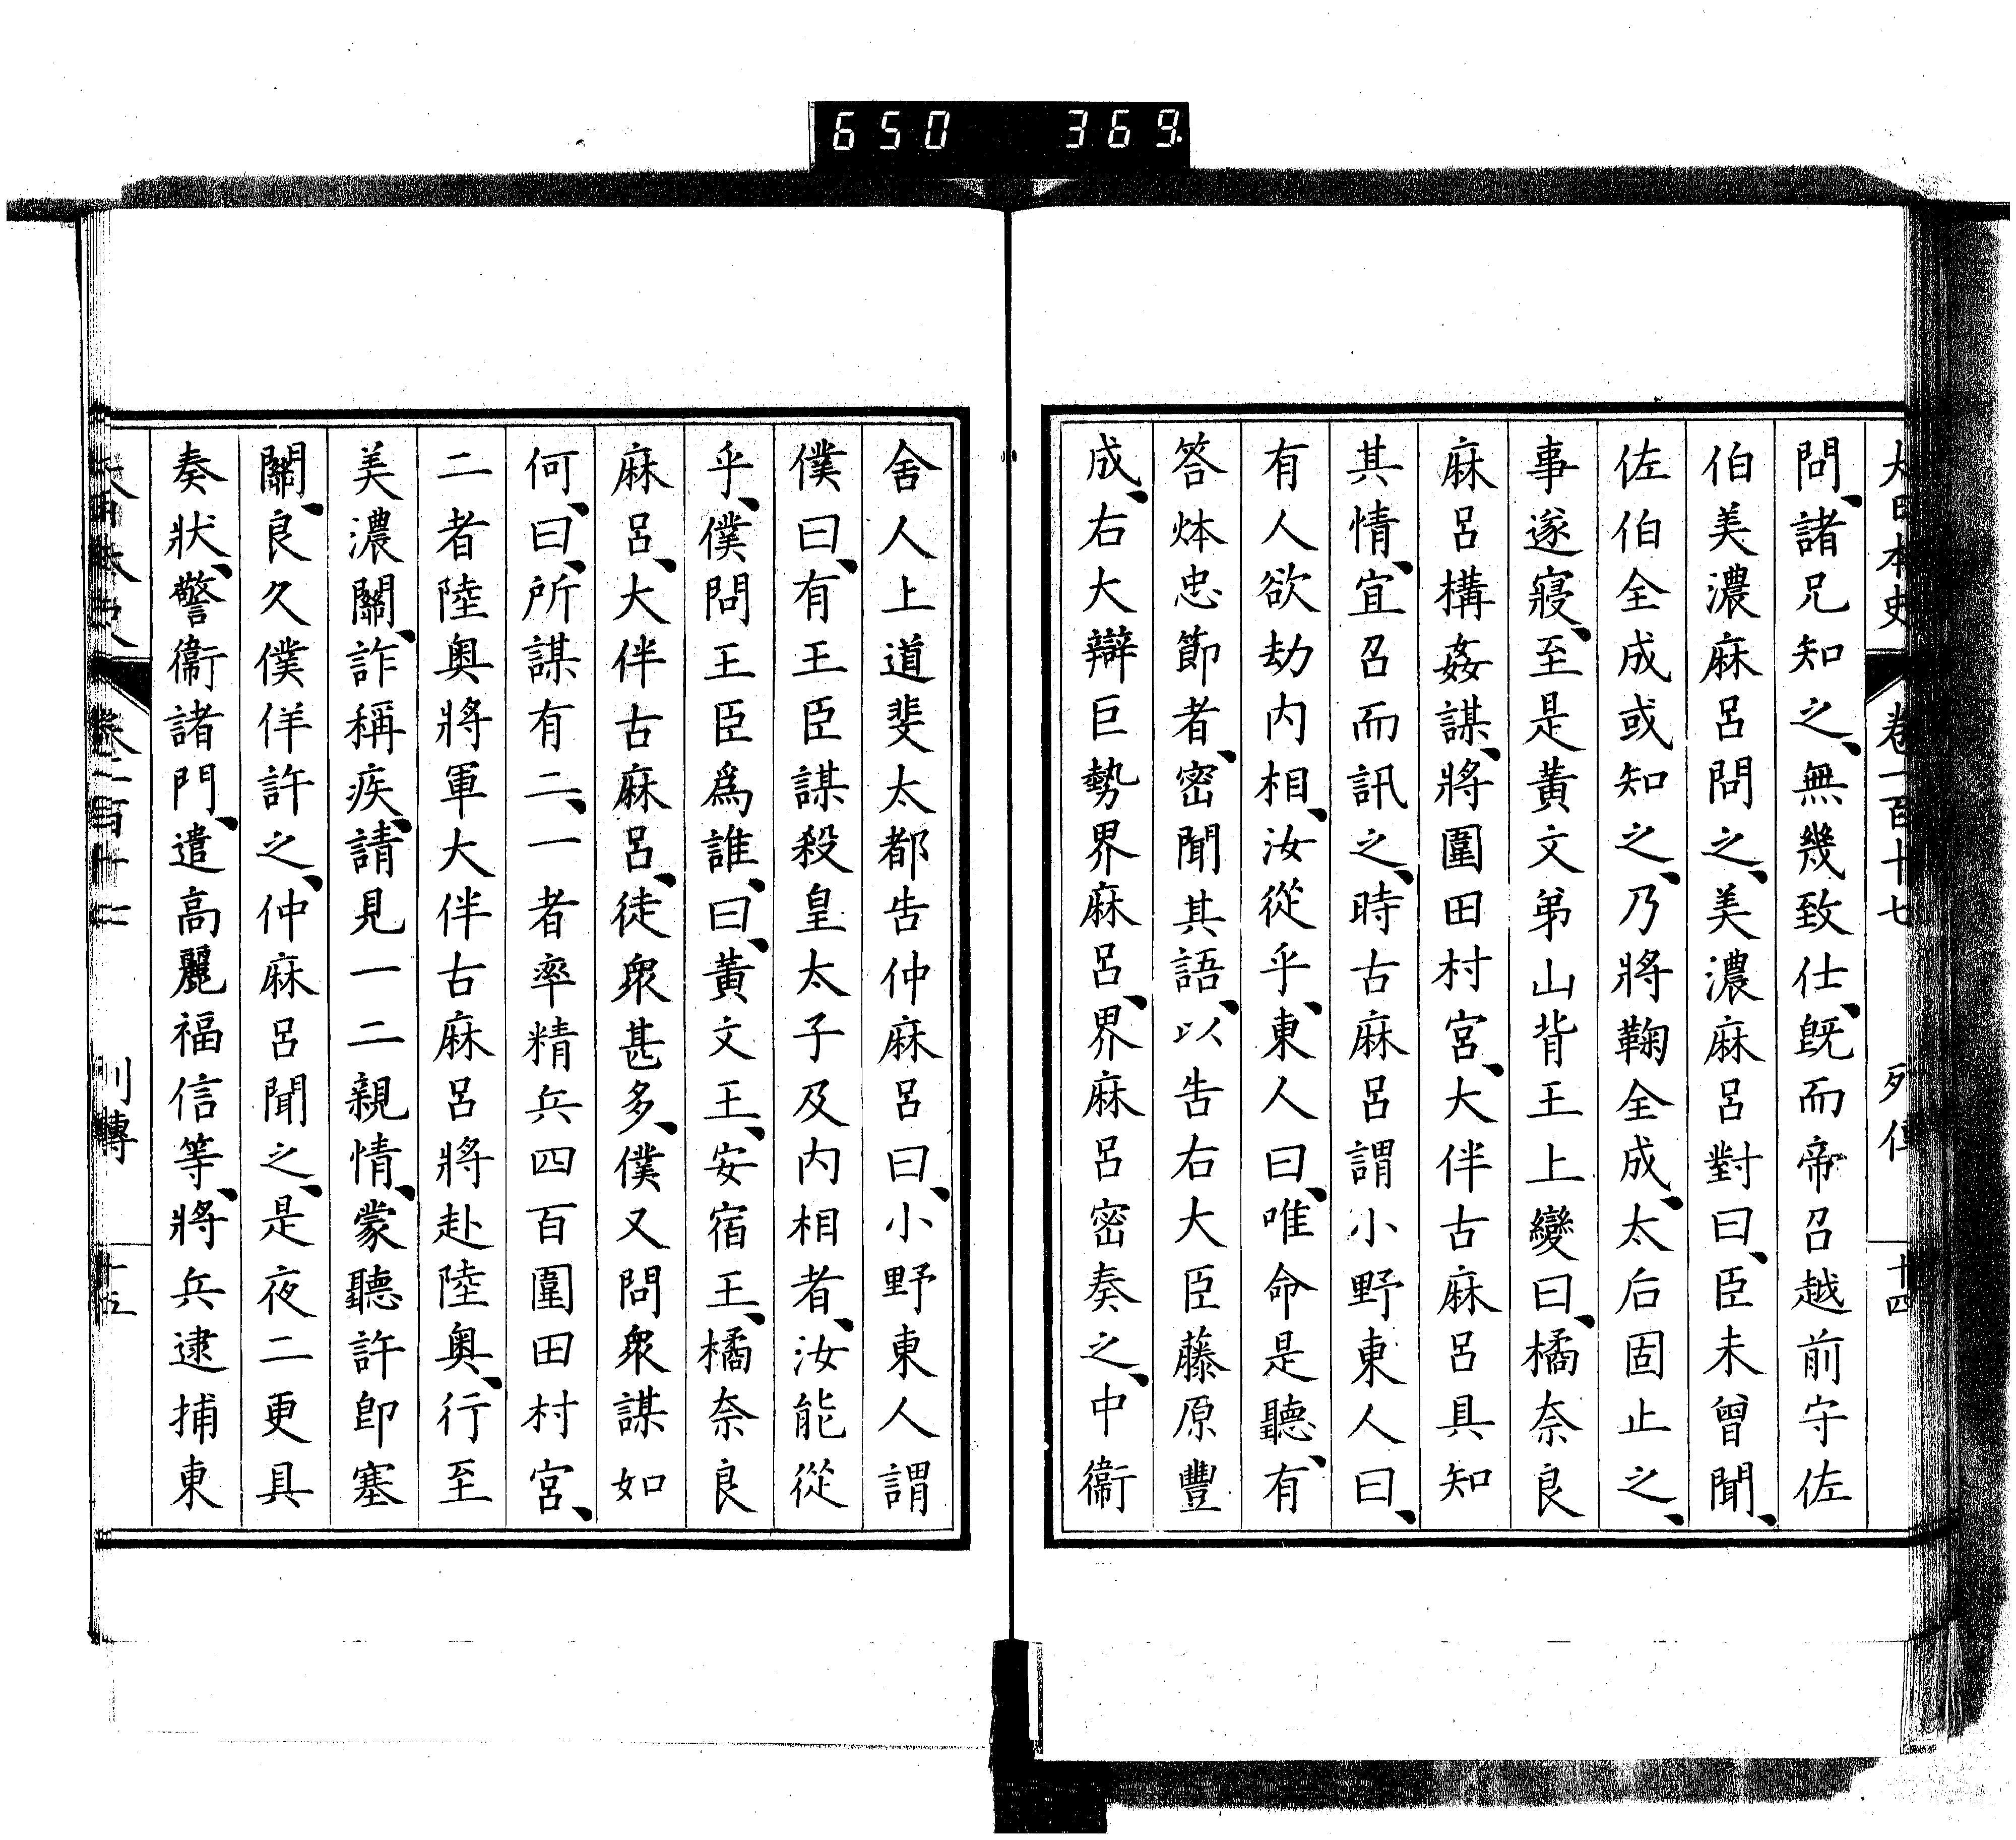 650 369.
大日本史 卷一百十七 列傳 十四
問、諸兄知之、無幾致仕、旣而帝召越前守佐
伯美濃麻呂問之、美濃麻呂對曰、臣未曾聞、
佐伯全成或知之、乃將鞫全成、太后固止之、
事遂寢、至是黃文弟山背王上變曰、橘奈良
麻呂構姦謀、將圍田村宮、大伴古麻呂具知
其情、宜召而訊之、時古麻呂謂小野東人曰、
有人欲劫内相、汝從乎、東人曰、唯命是聽、有
答㶱忠節者、密聞其語、以告右大臣藤原豐
成、右大辯巨勢界麻呂、界麻呂密奏之、中衞
舍人上道斐太都告仲麻呂曰、小野東人謂
僕曰、有王臣謀殺皇太子及内相者、汝能從
乎、僕問王臣爲誰、曰、黃文王、安宿王、橘奈良
麻呂、大伴古麻呂、徒衆甚多、僕又問衆謀如
何、曰、所謀有二、一者率精兵四百圍田村宮、
二者陸奧將軍大伴古麻呂將赴陸奧、行至
美濃關、詐稱疾、請見一二親情、蒙聽許卽塞
關、良久僕佯許之、仲麻呂聞之、是夜二更具
奏狀、警衞諸門、遣高麗福信等、將兵逮捕東